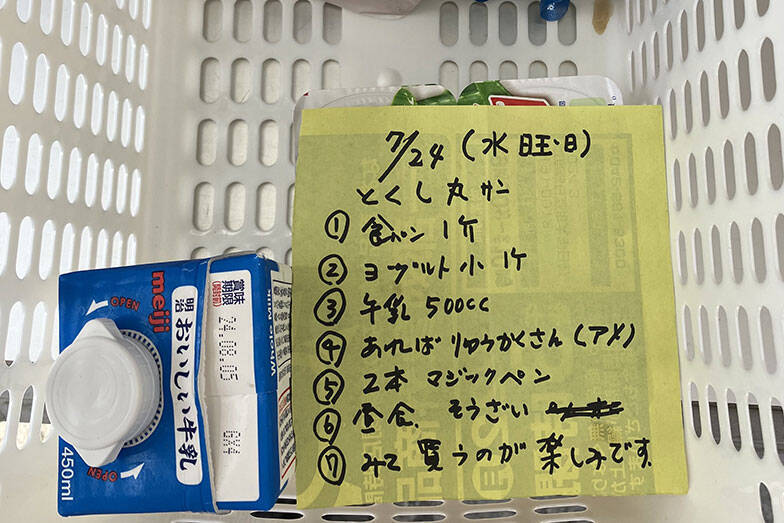 7/24 (水曜日)
とくし丸サン
① 食パン 1ケ
② ヨーグルト小 1ケ
③ 牛乳 500cc
④ あればりゅうかくさん(アメ)
⑤ 2本 マジックペン
⑥ 昼食. そうざい
⑦ みて買うのが楽しみです.
OPEN
meiji
明治
おいしい牛乳
OPEN
450ml
賞味
期限
(開封前)
24.08.05